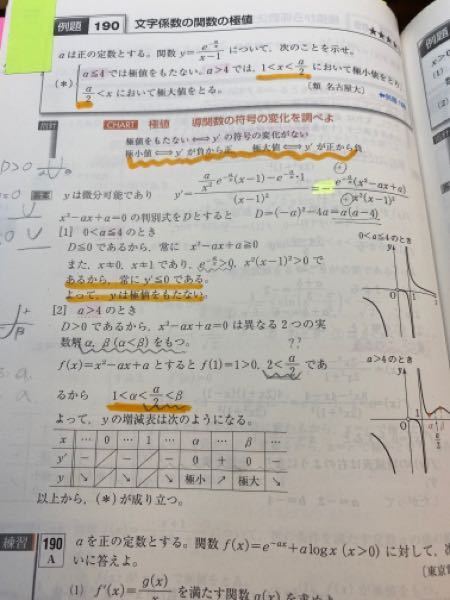 例題 190 文字係数の関数の極値
★★★★
aは正の定数とする。関数 y=e^{-a/x}/(x-1) について,次のことを示せ。
(*) a≦4では極値をもたない。a>4では,1<x<a/2 において極小値をとり,
a/2<x において極大値をとる。 [類 名古屋大]
CHART 極値 導関数の符号の変化を調べよ
極値をもたない⟺y'の符号の変化がない
極小値⟺y'が負から正 極大値⟺y'が正から負
D>0
yは微分可能であり y'=
x²-ax+a=0 の判別式をDとすると D=(-a)²-4a=a(a-4)
[1] 0<a≦4のとき
D≦0であるから,常に x²-ax+a≧0
また,x≠0,x≠1であり,e^{-a/x}>0,x²(x-1)²>0で
あるから,常に y'≦0である。
よって,yは極値をもたない。
[2] a>4のとき
D>0であるから,x²-ax+a=0 は異なる2つの実
数解α,β(α<β)をもつ。
??
f(x)=x²-ax+a とすると f(1)=1>0,2<a/2 であ
るから 1<α<a/2<β
よって,yの増減表は次のようになる。
x … 0 … 1 … α … β …
y' - - - 0 + 0 -
y ↘ ↘ ↘ 極小 ↗ 極大 ↘
以上から,(*)が成り立つ。
0<a≦4のとき
y
0 1 x
a>4のとき
y
0
練習 190 A
aを正の定数とする。関数 f(x)=e^{-ax}+a log x (x>0) に対して,次
いに答えよ。
(1) f'(x)=g(x)/x を満たす関数 g(x) を求めよ